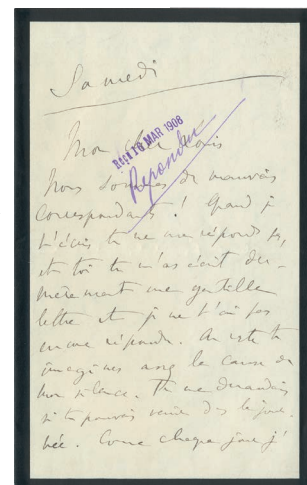 Samedi
Reçu 16 MAR 1908
Répondu
Mon cher Louis
Nous sommes de mauvais
correspondants ! Quand je
t'écris tu ne me réponds pas,
et toi tu m'as écrit der-
nièrement une gentille
lettre et je ne t'ai pas
encore répondu. Du reste tu
imagines assez la cause de
mon silence. Tu me demandais
si tu pouvais venir dès le jour
née. Comme chaque jour j'